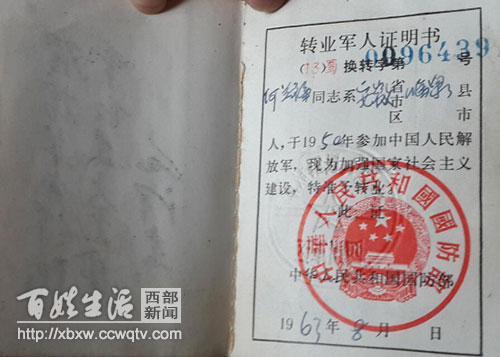 转业军人证明书
(63)换转字第0096439号
同志系安徽省市区临泉县市
人,于1950年参加中国人民解
放军,现为加强国家社会主义
建设,特准予转业。
此证
中华人民共和国国防部
中华人民共和國國防部
1963年8月 日
百姓生活 西部新闻
http://xbxw.ccwqtv.com/